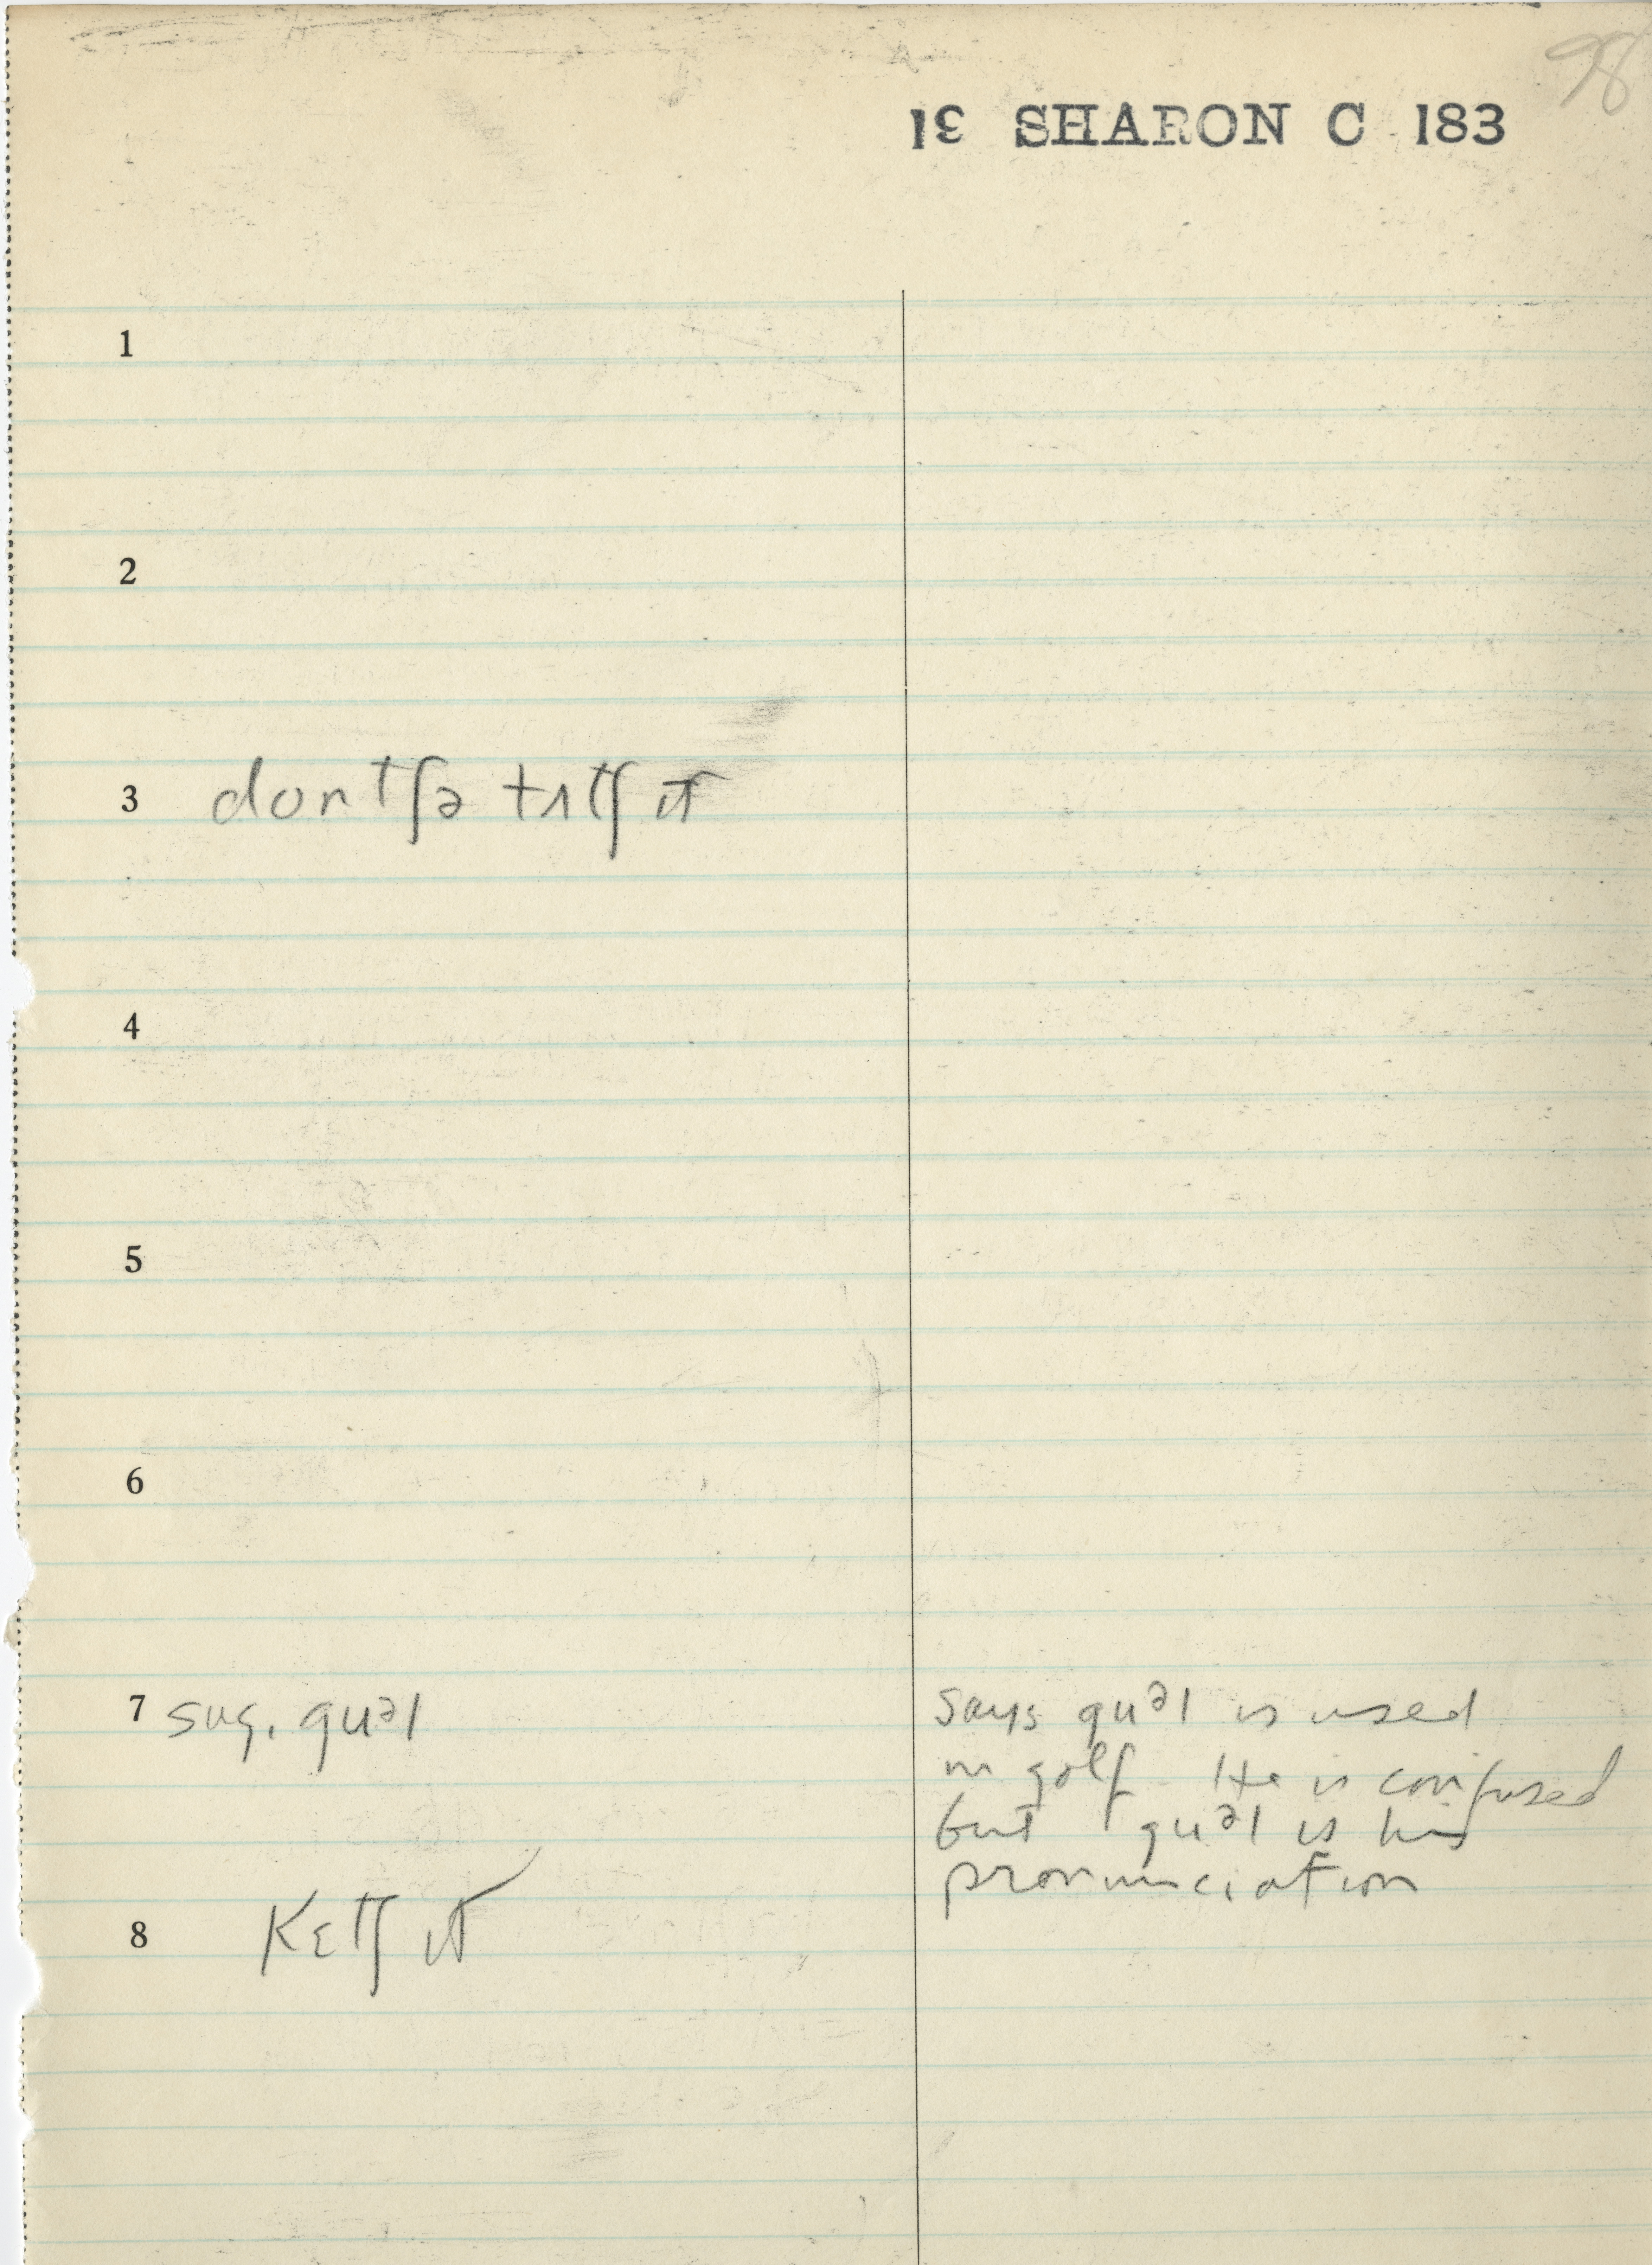 98
13 SHARON C 183
1
2
3 dontʃə tʌtʃ ɪt
4
5
6
7 sug. guəl
says guəl is used
in golf He is confused
but guəl is his
pronunciation
8 Kɛtʃ ɪt